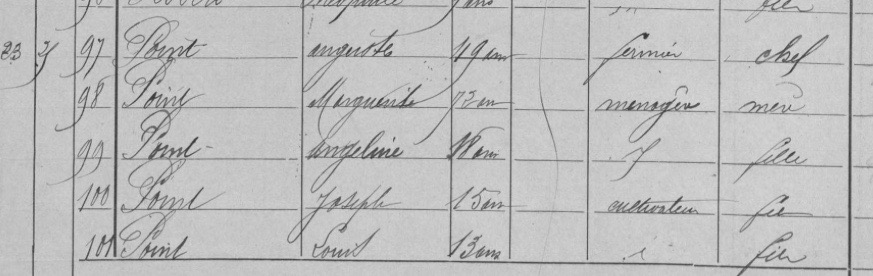 fils
23 97 Point auguste 49 ans fermier chef
98 Point Marguerite 73 an menagère mère
99 Point angeline 18 ans fille
100 Point Joseph 15 ans cultivateur fils
101 Point Louis 13 ans fils